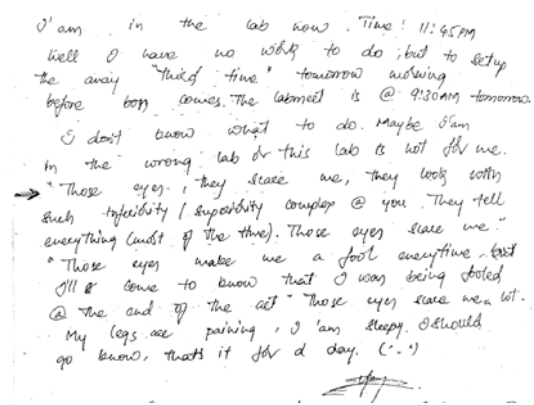 I'am in the lab now. Time: 11:45PM
Well I have no work to do, but to setup
the array "third time" tomorrow morning
before boss comes. The labmeet is @ 9:30AM tomorrow.
I dont know what to do. Maybe I'am
in the wrong lab or this lab is not for me.
→ "Those eyes, they scare me, they look with
such inferiority / superiority complex @ you. They tell
everything (most of the time). Those eyes scare me."
"Those eyes make me a fool everytime but
I'll come to know that I was being fooled
@ the end of the act" Those eyes scare me a lot.
My legs are paining, I'am sleepy. I should
go know, thats it for d day. (^-^)